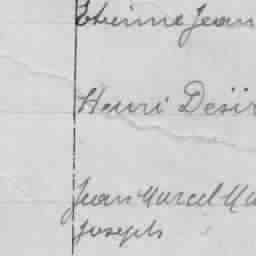 Etienne Jean
Henri Désir
Jean Marcel Ma
Joseph